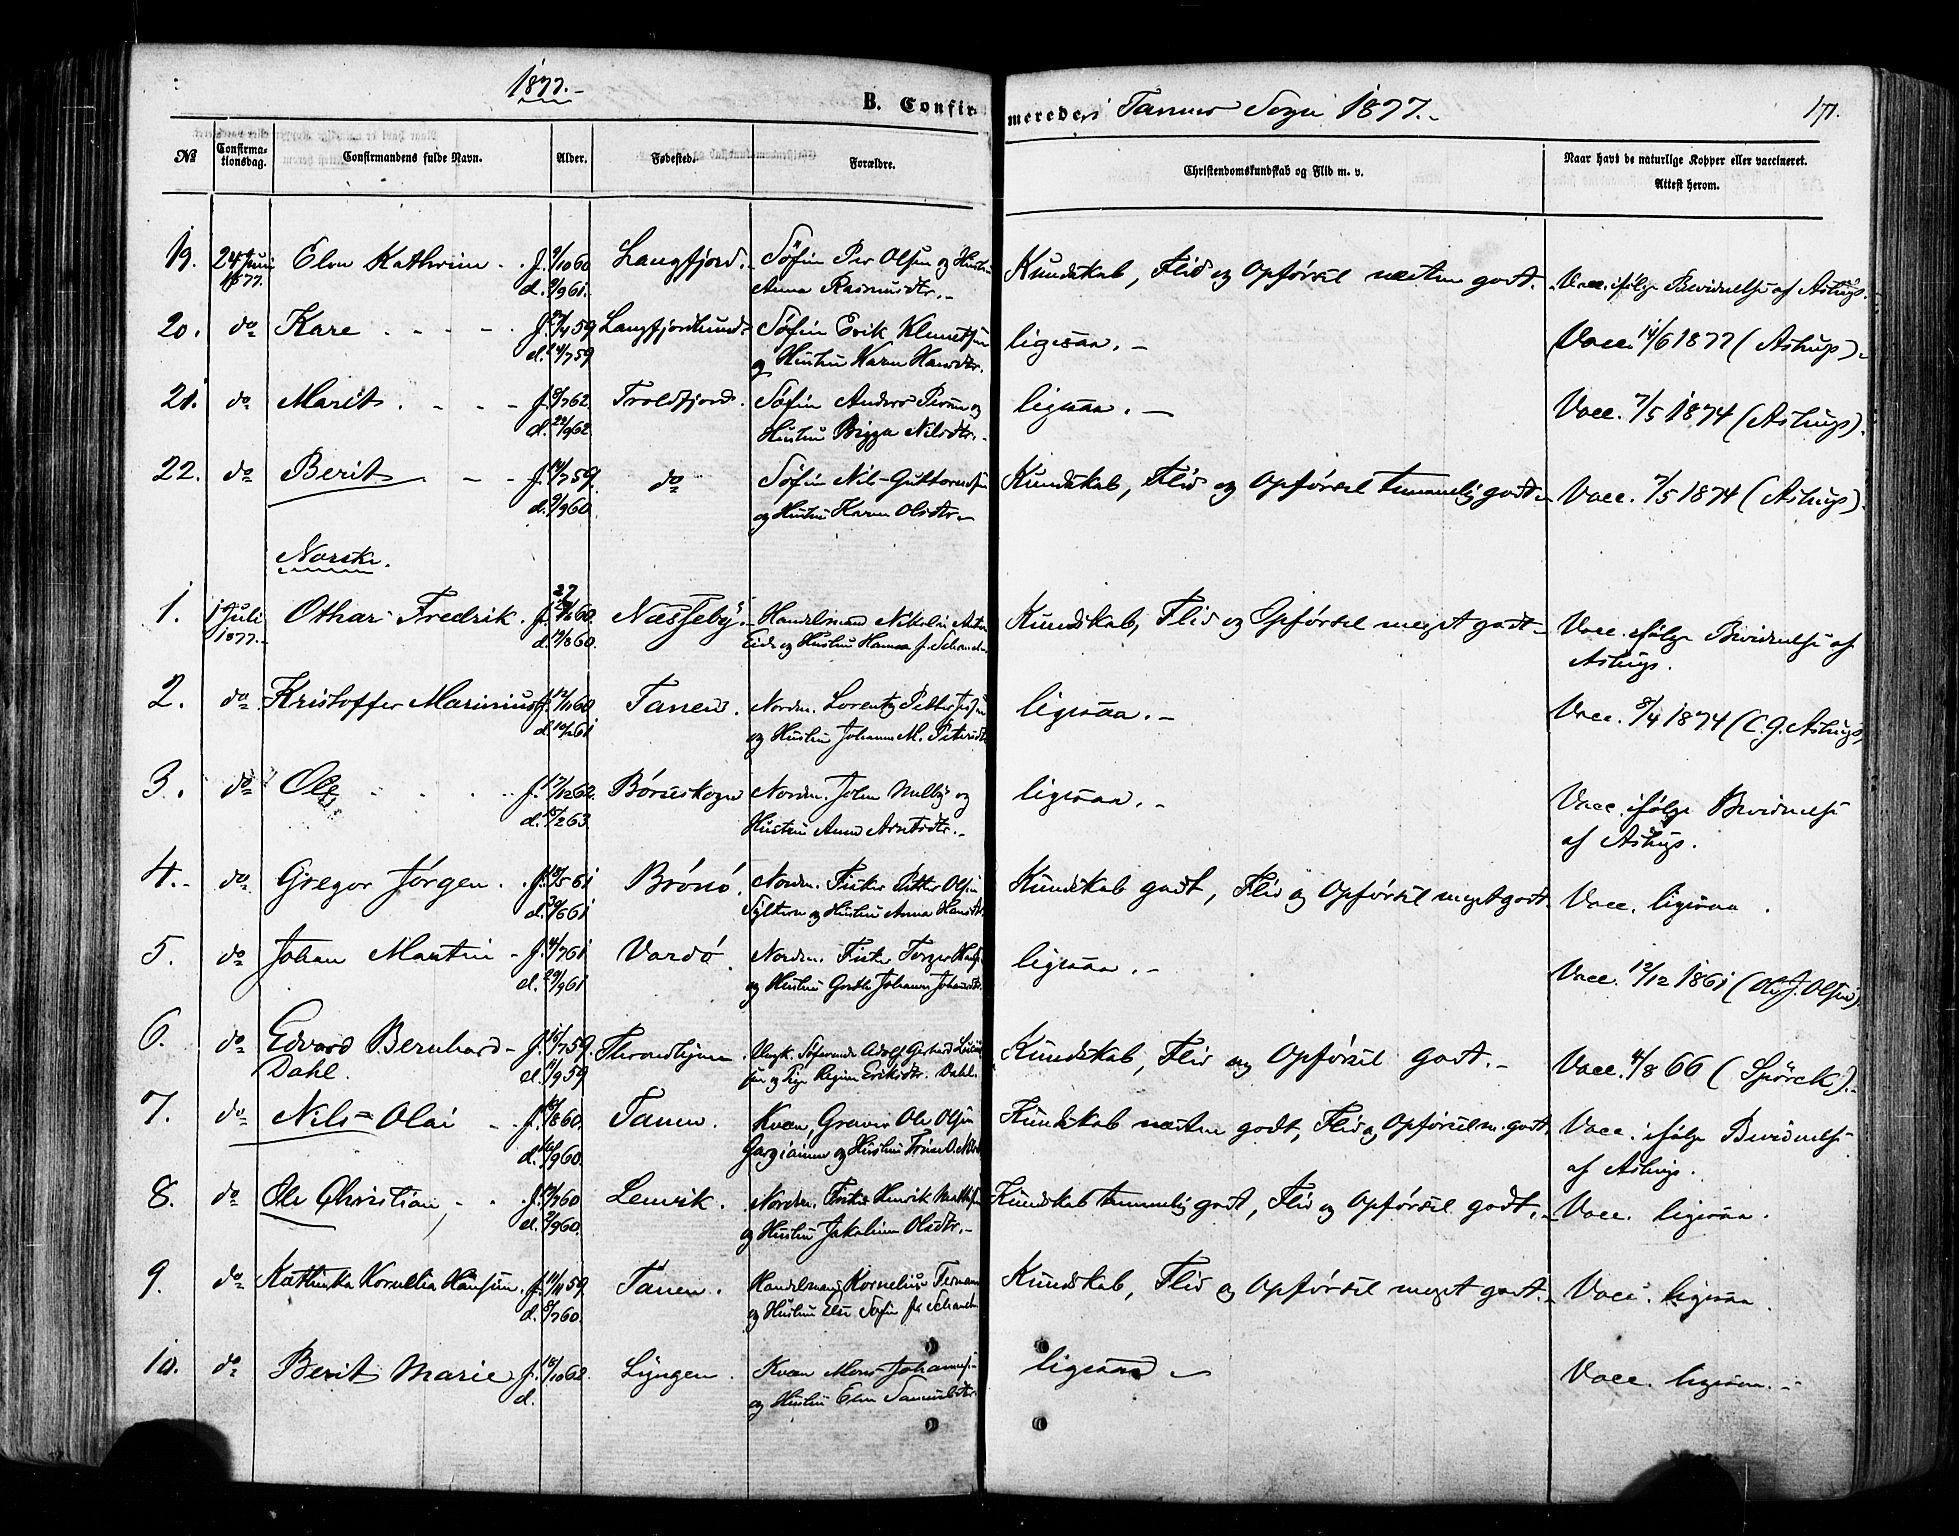 1877.-
B. Confirmerede i Tanens Sogn 1877.-
171.
No
Confirmationsdag.
Confirmandens fulde Navn.
Alder.
Fødested.
Forældre.
Christendomskundskab og Flid m. v.
Naar havt de naturlige Kopper eller vaccineret. Attest herom.
19. 24 Juni 1877. Elen Kathrine . f. 9/10 60 Langfjord. Søfin Per Olsen og Hustru Kundskab, Flid og Opførsel næsten godt. Vacc. ifølge Bevidnelse af Astrup.
d. 2/9 61. Anna Rasmusdtr.-
20. do Kare - - - f. 27/4 59 Langfjordbund Søfin Erik Klemetsen ligesaa. - Vacc. 14/6 1877 (Astrup).
d. 24/7 59 og Hustru Karen Hansdtr.
21. do Marit . - - - f. 9/7 62. Troldfjord. Søfin Anders Persen og ligesaa. - Vacc. 7/5 1874 (Astrup).
d. 22/9 62. Hustru Bigga Nilsdtr.-
22. do Berit - - f. 14/7 59. do Søfin Nil-Guttormsen Kundskab, Flid og Opførsel temmelig godt.- Vacc. 7/5 1874 (Astrup).
d. 9/9 60. og Hustru Karen Olsdtr.-
Norske.
1. 1 Juli 1877.- Othar Fredrik . f. 27/6 60. Næsseby.- Handelsmand Nikolai Kundskab, Flid og Opførsel meget godt- Vacc. ifølge Bevidnelse af
d. 19/8 60. Eide og Hustru Hanna f. Schanche Astrup.
2. do Kristoffer Marinius f. 12/11 60 Tanen. Nordm. Lorentz Petter ligesaa.- Vacc. 8/4 1874 (C. G. Astrup)
d. 10/2 61 og Hustru Johanna M. Petersdtr
3. do Ole f. 17/12 62. Børseskogn Nordm. John Melby og ligesaa.- Vacc. ifølge Bevidnelse
d. 15/2 63. Hustru Anne Arntsdtr.- af Astrup.
4.- do Gregor Jørgen . f. 18/5 61 Brønø. Nordm. Fisker Petter Olsen Kundskab godt, Flid og Opførsel meget godt. Vacc. ligesaa .
d. 30/6 61 og Hustru Anna Hansdtr
5. do Johan Martin - f. 4/7 61 Vardø. Nordm. Fisker ligesaa.- Vacc. 12/12 1861 (Ole J. Olsen)
d. 29/9 61 og Hustru Johanna Johansdtr
6. do Edvard Bernhard - f. 15/7 59. Throndhjem. Ungk. Søfarende Adolf Gerhard Kundskab, Flid og Opførsel godt.- Vacc. 4/8 66 (Spørck).-
Dahl. d. 11/9 59 og Pige Regine Eriksdtr. Dahl.
7. do Nils=Olai - - f. 18/8 60. Tanen. Kvæn, Graver Ole Olsen Kundskab næsten godt, Flid og Opførsel m. godt. Vacc. ifølge Bevidnelse
d. 16/9 60. og Hustru af Astrup.
8. do Ole Christian, - . f. 12/7 60 Lenvik. Nordm. Fisker Henrik Kundskab temmelig godt, Flid og Opførsel godt.- Vacc. ligesaa.
d. 2/9 60. og Hustru Jakobine Olsdtr.-
9. do Kathinka Kornelia Hansen. f. 11/11 59. Tanen. Handelsmand Kornelius Kundskab, Flid og Opførsel meget godt.- Vacc. ligesaa.
d. 8/7 60. og Hustru Else Sofie f. Schanche
10. do Berit Marie f. 18/10 62. Lyngen. Kvæn Mons Johannesen ligesaa - Vacc. ligesaa.-
d. og Hustru Elen Samuelsdtr